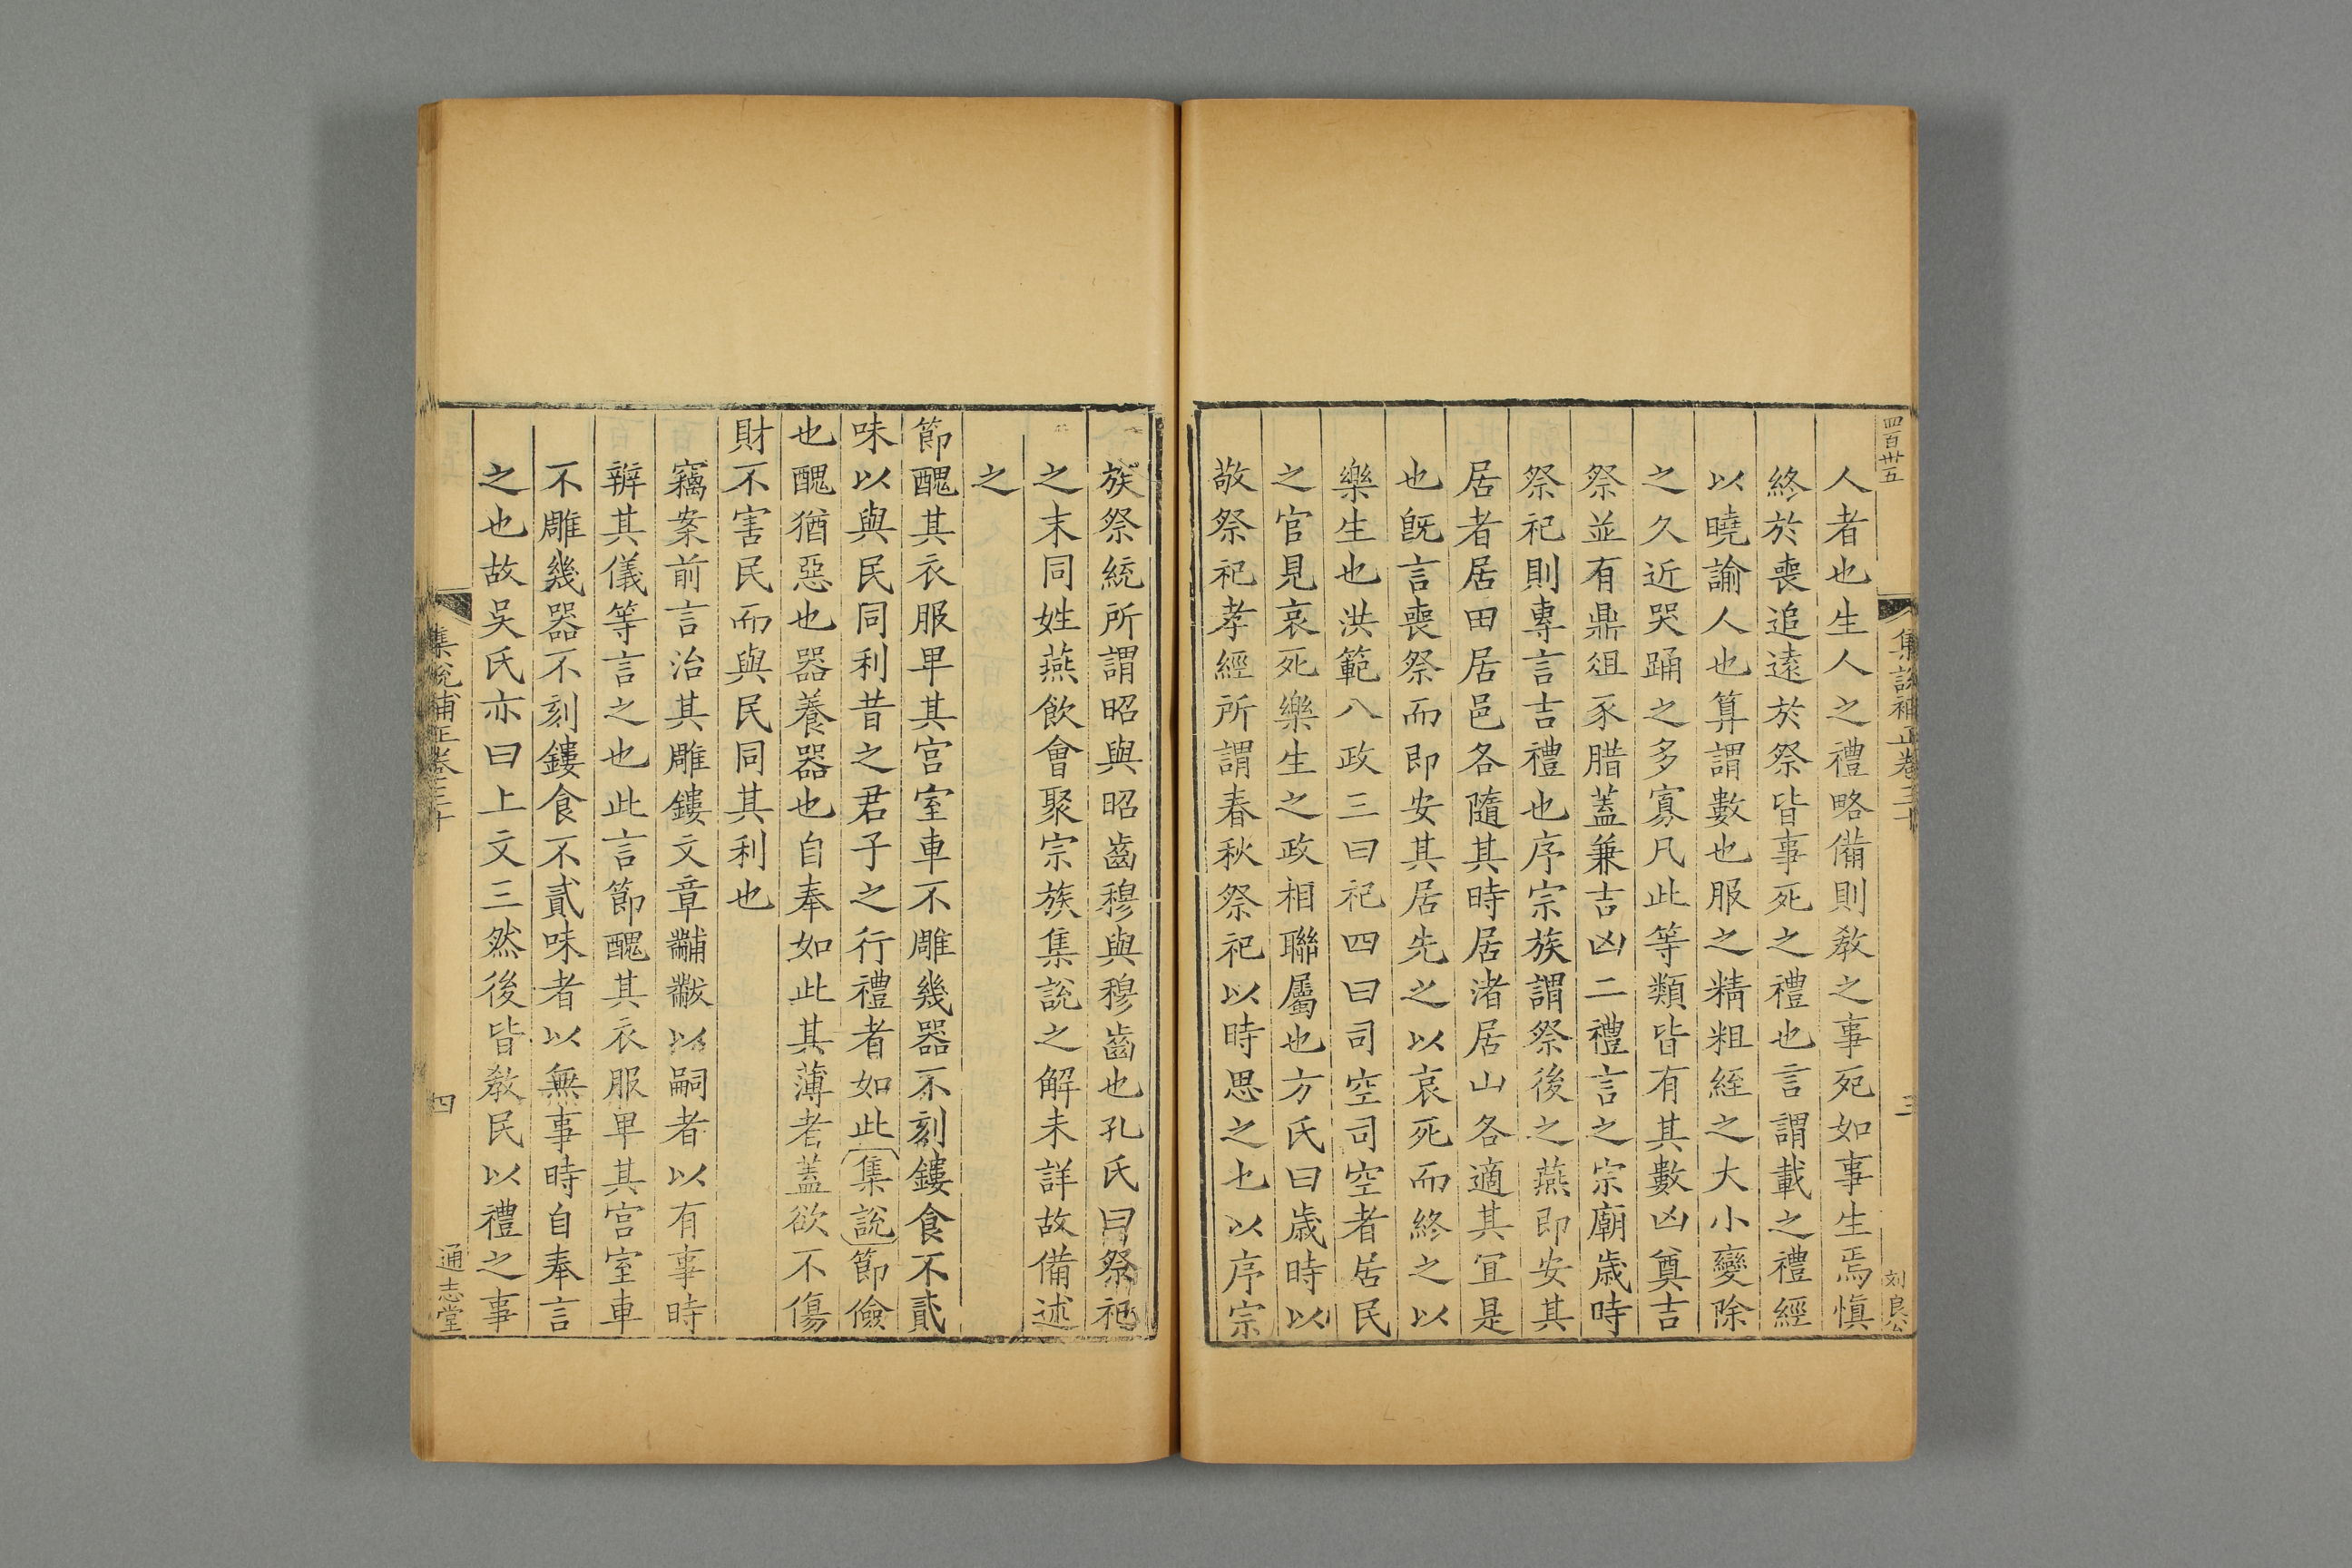 四百卅五
集說補正卷三十
三
刘良公
人者也生人之禮略備則敎之事死如事生焉愼
終於喪追遠於祭皆事死之禮也言謂載之禮經
以曉諭人也算謂數也服之精粗絰之大小變除
之久近哭踊之多寡凡此等類皆有其數凶奠吉
祭並有鼎俎豕腊蓋兼吉凶二禮言之宗廟歲時
祭祀則專言吉禮也序宗族謂祭後之燕即安其
居者居田居邑各隨其時居渚居山各適其宜是
也旣言喪祭而即安其居先之以哀死而終之以
樂生也洪範八政三曰祀四曰司空司空者居民
之官見哀死樂生之政相聯屬也方氏曰歲時以
敬祭祀孝經所謂春秋祭祀以時思之也以序宗
族祭統所謂昭與昭齒穆與穆齒也孔氏曰祭祀
之末同姓燕飮會聚宗族集說之解未詳故備述
之
節醜其衣服卑其宮室車不雕幾器不刻鏤食不貳
味以與民同利昔之君子之行禮者如此集說節儉
也醜猶惡也器養器也自奉如此其薄者蓋欲不傷
財不害民而與民同其利也
竊案前言治其雕鏤文章黼黻以嗣者以有事時
辨其儀等言之也此言節醜其衣服卑其宮室車
不雕幾器不刻鏤食不貳味者以無事時自奉言
之也故吳氏亦曰上文三然後皆敎民以禮之事
集說補正卷三十
四
通志堂